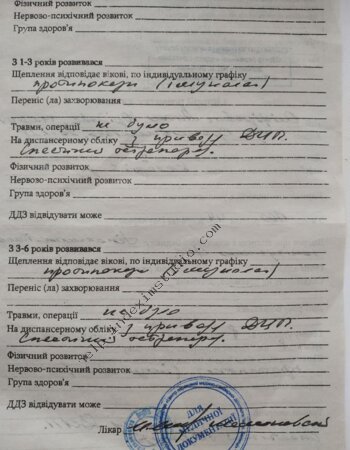 Фізичний розвиток
Нервово-психічний розвиток
Група здоров'я
З 1-3 років розвивався
Щеплення відповідає вікові, по індивідуальному графіку
протипокази (імунолог)
Переніс (ла) захворювання
Травми, операції не було
На диспансерному обліку з приводу ДЦП.
Фізичний розвиток
Нервово-психічний розвиток
Група здоров'я
ДДЗ відвідувати може
З 3-6 років розвивався
Щеплення відповідає вікові, по індивідуальному графіку
протипокази (імунолог)
Переніс (ла) захворювання
Травми, операції не було
На диспансерному обліку з приводу ДЦП.
Фізичний розвиток
Нервово-психічний розвиток
Група здоров'я
ДДЗ відвідувати може
Лікар
ДЛЯ МЕДИЧНОЇ ДОКУМЕНТАЦІЇ
help.indeximstudio.com